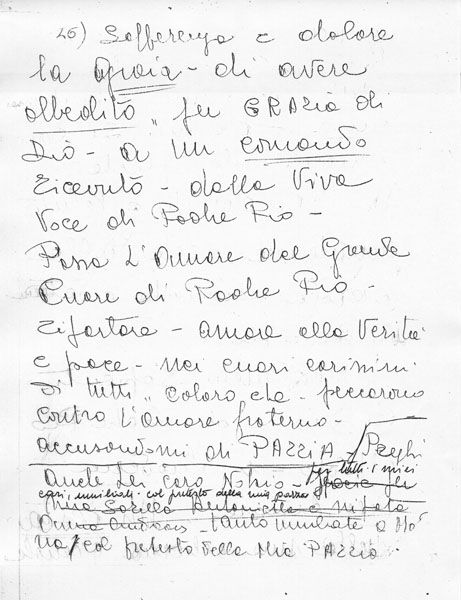 46) Sofferenza e dolore
la gioia - di avere
obbedito " per GRAZIA di
Dio - a un comando
ricevuto - dalla Viva
Voce di Padre Pio -
Possa L'Amore del Grande
Cuore di Padre Pio -
riportare - amore alla Verità
e pace - nei cuori carissimi
di tutti " coloro che - peccarono
contro l'amore fraterno -
accusandomi di PAZZIA - Preghi
Anche Lei caro Notaio - per tutti i miei
cari, umiliati col pretesto della mia pazzia
mia Sorella Antonietta e nipote
Anna tanto umiliate a
col pretesto della Mia PAZZIA.